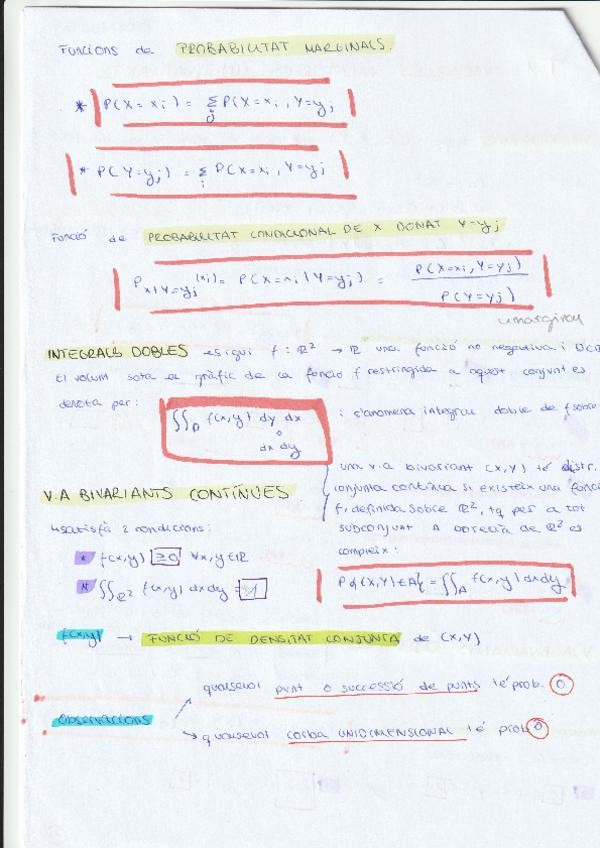 Funcions de PROBABILITAT MARGINALS.
* P(X=xi) = Σj P(X=xi, Y=yj
* P(Y=yj) = Σi P(X=xi, Y=yj
Funció de PROBABILITAT CONDICIONAL DE X DONAT Y=yj
P X|Y=yj (xi) = P(X=xi | Y=yj) = P(X=xi, Y=yj) / P(Y=yj)
INTEGRALS DOBLES sigui f: ℝ² → ℝ una funció no negativa i
El volum sota el gràfic de la funció f restringida a aquest conjunt es
denota per: ∬D f(x,y) dy dx
o
dx dy
i s'anomena integral doble de f sobre
una v.a bivariant (X,Y) té distr.
conjunta contínua si existeix una funció
f, definida sobre ℝ², tq per a tot
subconjunt A de ℝ² es
compleix:
P{(X,Y)∈A} = ∬A f(x,y) dxdy
V.A BIVARIANTS CONTÍNUES
satisfà 2 condicions:
* f(x,y) ≥0 ∀x,y∈ℝ
* ∬ℝ² f(x,y) dxdy = 1
f(x,y) → FUNCIÓ DE DENSITAT CONJUNTA de (X,Y)
Observacions
qualsevol punt o successió de punts té prob. 0
qualsevol corba UNIDIMENSIONAL té prob 0